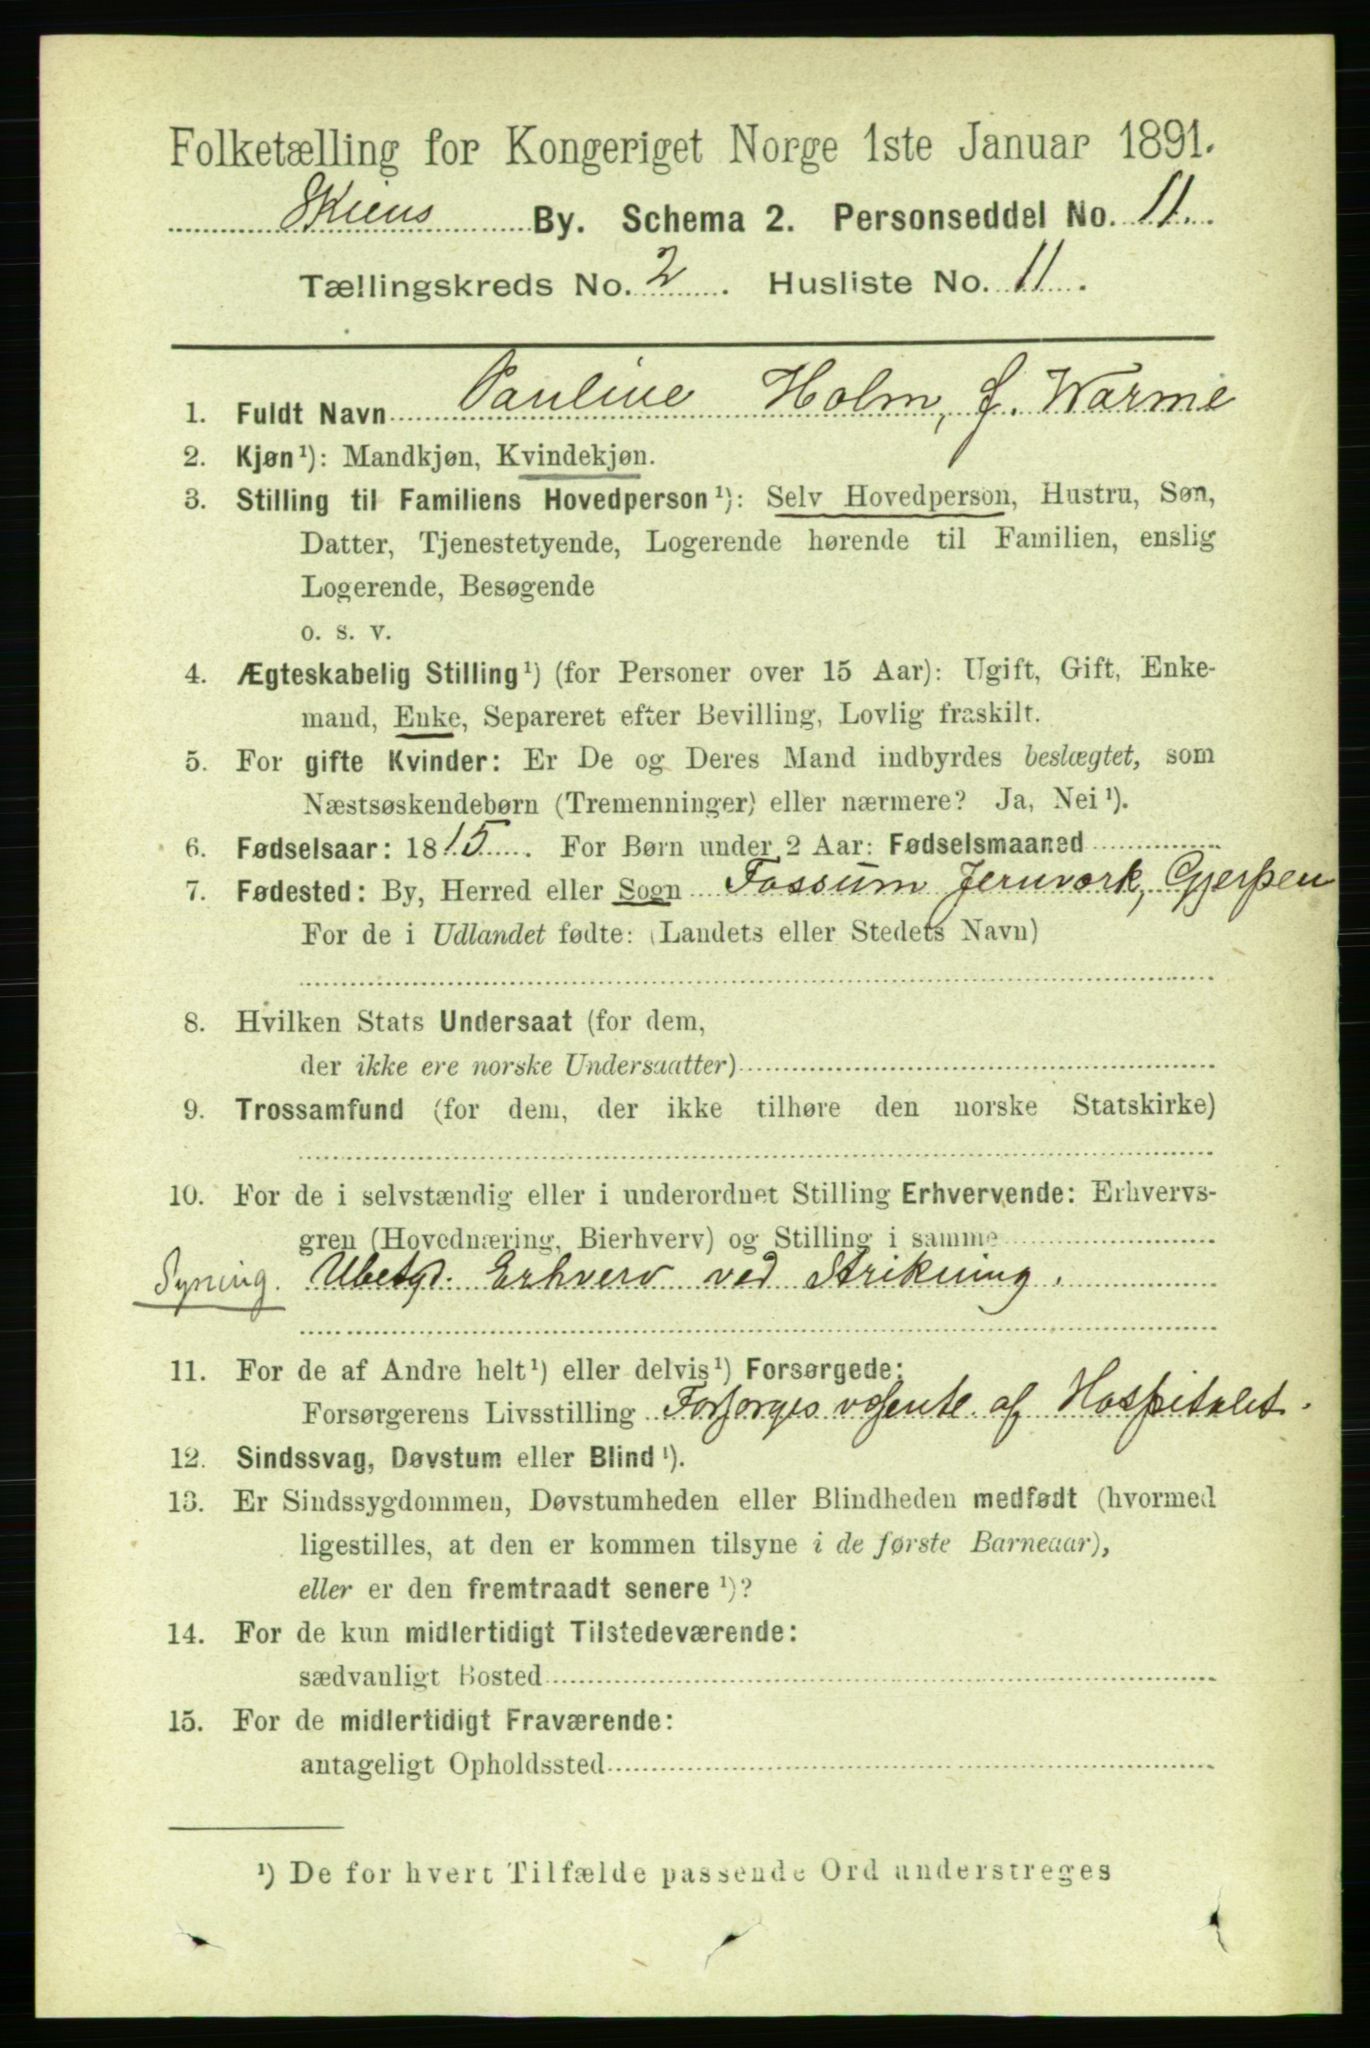 Folketælling for Kongeriget Norge 1ste Januar 1891.
Skiens By. Schema 2. Personseddel No. 11.
Tællingskreds No. 2. Husliste No. 11.
1. Fuldt Navn Pauline Holm, f. Warme
2. Kjøn¹): Mandkjøn, Kvindekjøn.
3. Stilling til Familiens Hovedperson¹): Selv Hovedperson, Hustru, Søn,
Datter, Tjenestetyende, Logerende hørende til Familien, enslig
Logerende, Besøgende
o. s. v.
4. Ægteskabelig Stilling¹) (for Personer over 15 Aar): Ugift, Gift, Enke-
mand, Enke, Separeret efter Bevilling, Lovlig fraskilt.
5. For gifte Kvinder: Er De og Deres Mand indbyrdes beslægtet, som
Næstsøskendebørn (Tremenninger) eller nærmere? Ja, Nei¹).
6. Fødselsaar: 1815. For Børn under 2 Aar: Fødselsmaaned
7. Fødested: By, Herred eller Sogn Fossum Jernværk, Gjerpen
For de i Udlandet fødte: (Landets eller Stedets Navn)
8. Hvilken Stats Undersaat (for dem,
der ikke ere norske Undersaatter)
9. Trossamfund (for dem, der ikke tilhøre den norske Statskirke)
10. For de i selvstændig eller i underordnet Stilling Erhvervende: Erhvervs-
gren (Hovednæring, Bierhverv) og Stilling i samme
Syning. Ubetyd. Erhverv ved Strikning.
11. For de af Andre helt¹) eller delvis¹) Forsørgede:
Forsørgerens Livsstilling Forsørges væsentl. af Hospitalet.
12. Sindssvag, Døvstum eller Blind¹).
13. Er Sindssygdommen, Døvstumheden eller Blindheden medfødt (hvormed
ligestilles, at den er kommen tilsyne i de første Barneaar),
eller er den fremtraadt senere¹)?
14. For de kun midlertidigt Tilstedeværende:
sædvanligt Bosted
15. For de midlertidigt Fraværende:
antageligt Opholdssted
¹) De for hvert Tilfælde passende Ord understreges